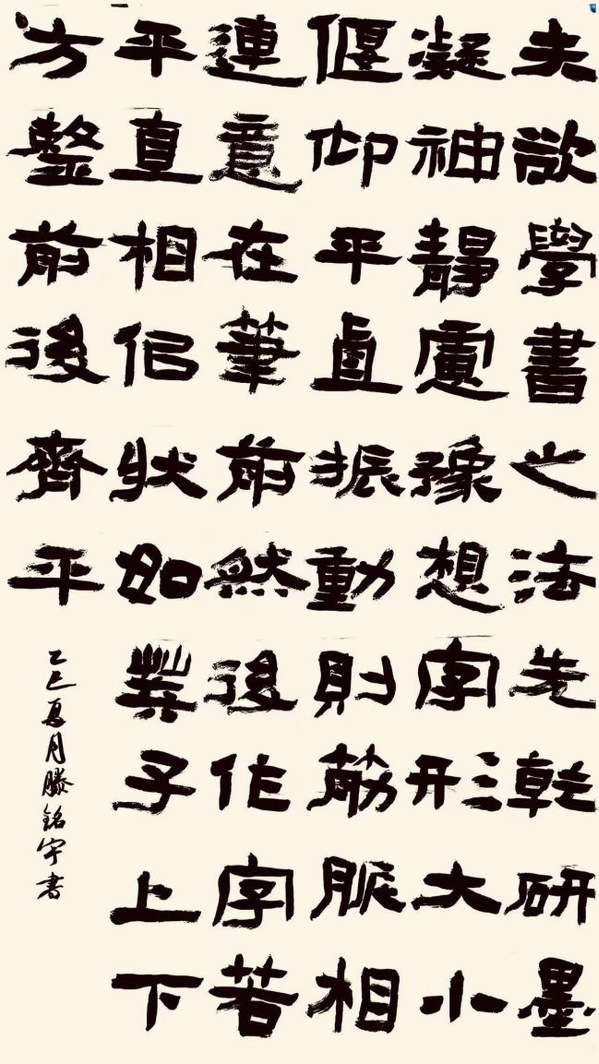 夫欲學書之法先乾研墨
凝神靜慮豫想字形大小
偃仰平直振動則筋脈相
連意在筆前然後作字若
平直相佀狀如筭子上下
方整前後齊平
乙巳夏月滕銘宇書